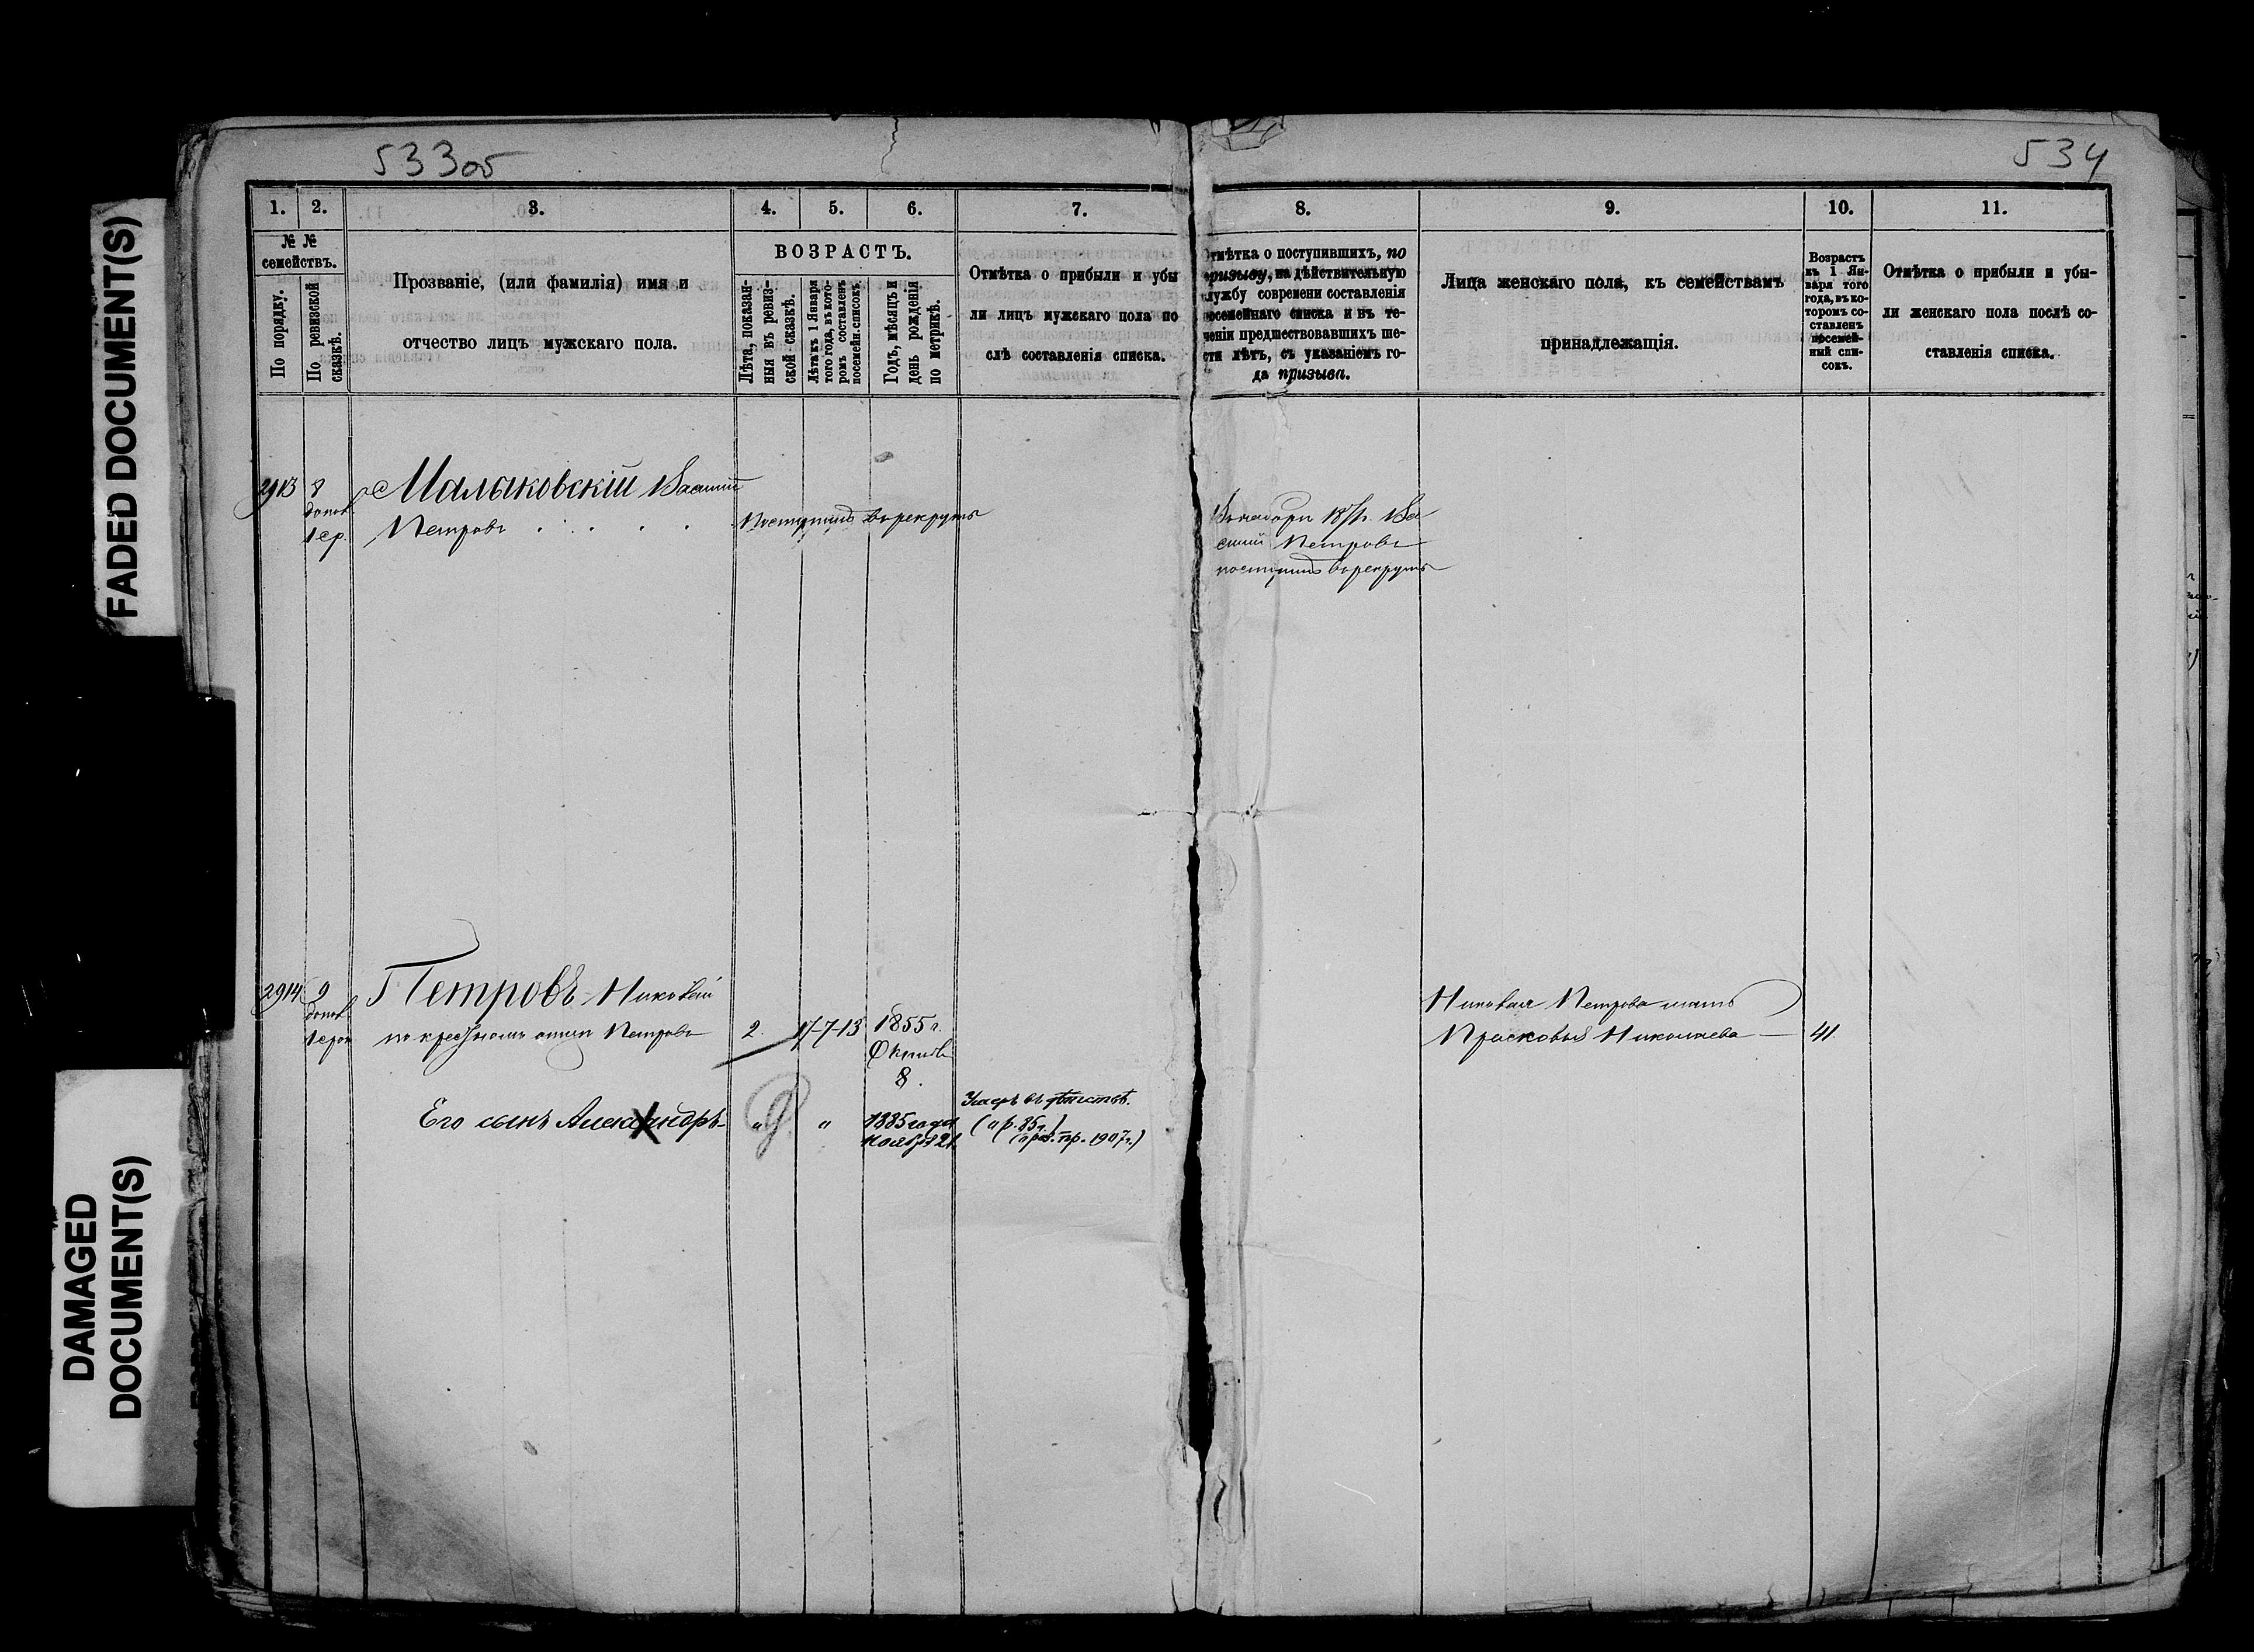 FADED DOCUMENT(S)
DAMAGED
DOCUMENT(S)
533об
534
1.
2.
3.
4.
5.
6.
7.
8.
9.
10.
11.
№ №
семействъ.
По порядку.
По ревизской
сказкѣ.
Прозваніе, (или фамилія) имя и
отчество лицъ мужскаго пола.
ВОЗРАСТЪ.
Лѣта, показан-
ныя въ ревиз-
ской сказкѣ.
Лѣта къ 1 Января
того года, въ кото-
ромъ составленъ
посемейн. списокъ.
Годъ, мѣсяцъ и
день рожденія
по метрикѣ.
Отмѣтка о прибыли и убы
ли лицъ мужскаго пола по
слѣ составленія списка.
Отмѣтка о поступившихъ, по
призыву, на дѣйствительную
службу современи составленія
посемейнаго списка и въ те-
ченіи предшествовавшихъ ше-
сти лѣтъ, съ указаніемъ го-
да призыва.
Лица женскаго пола, къ семействамъ
принадлежащія.
Возрастъ
къ 1 Ян-
варя того
года, въ ко-
торомъ со-
ставленъ
посемей-
ный спи-
сокъ.
Отмѣтка о прибыли и убы-
ли женскаго пола послѣ со-
ставленія списка.
2913 8 Малыковскій Василій
допол.
1 ср. Петровъ Поступилъ въ рекруты
Внаборъ 1871г. Ва
силій Петровъ
поступилъ въ рекруты
2914 9 Петровъ Николай
допол.
по крестному отцу Петровъ 2. 17-7-13 1855 г.
Октяб.
8.
Николая Петрова мать
Прасковья Николаева 41.
Его сынъ Александръ " " 1885 года
ноября 21.
Умеръ въ дѣтствѣ.
(пр. 85г.)
(прот. пр. 1907г.)